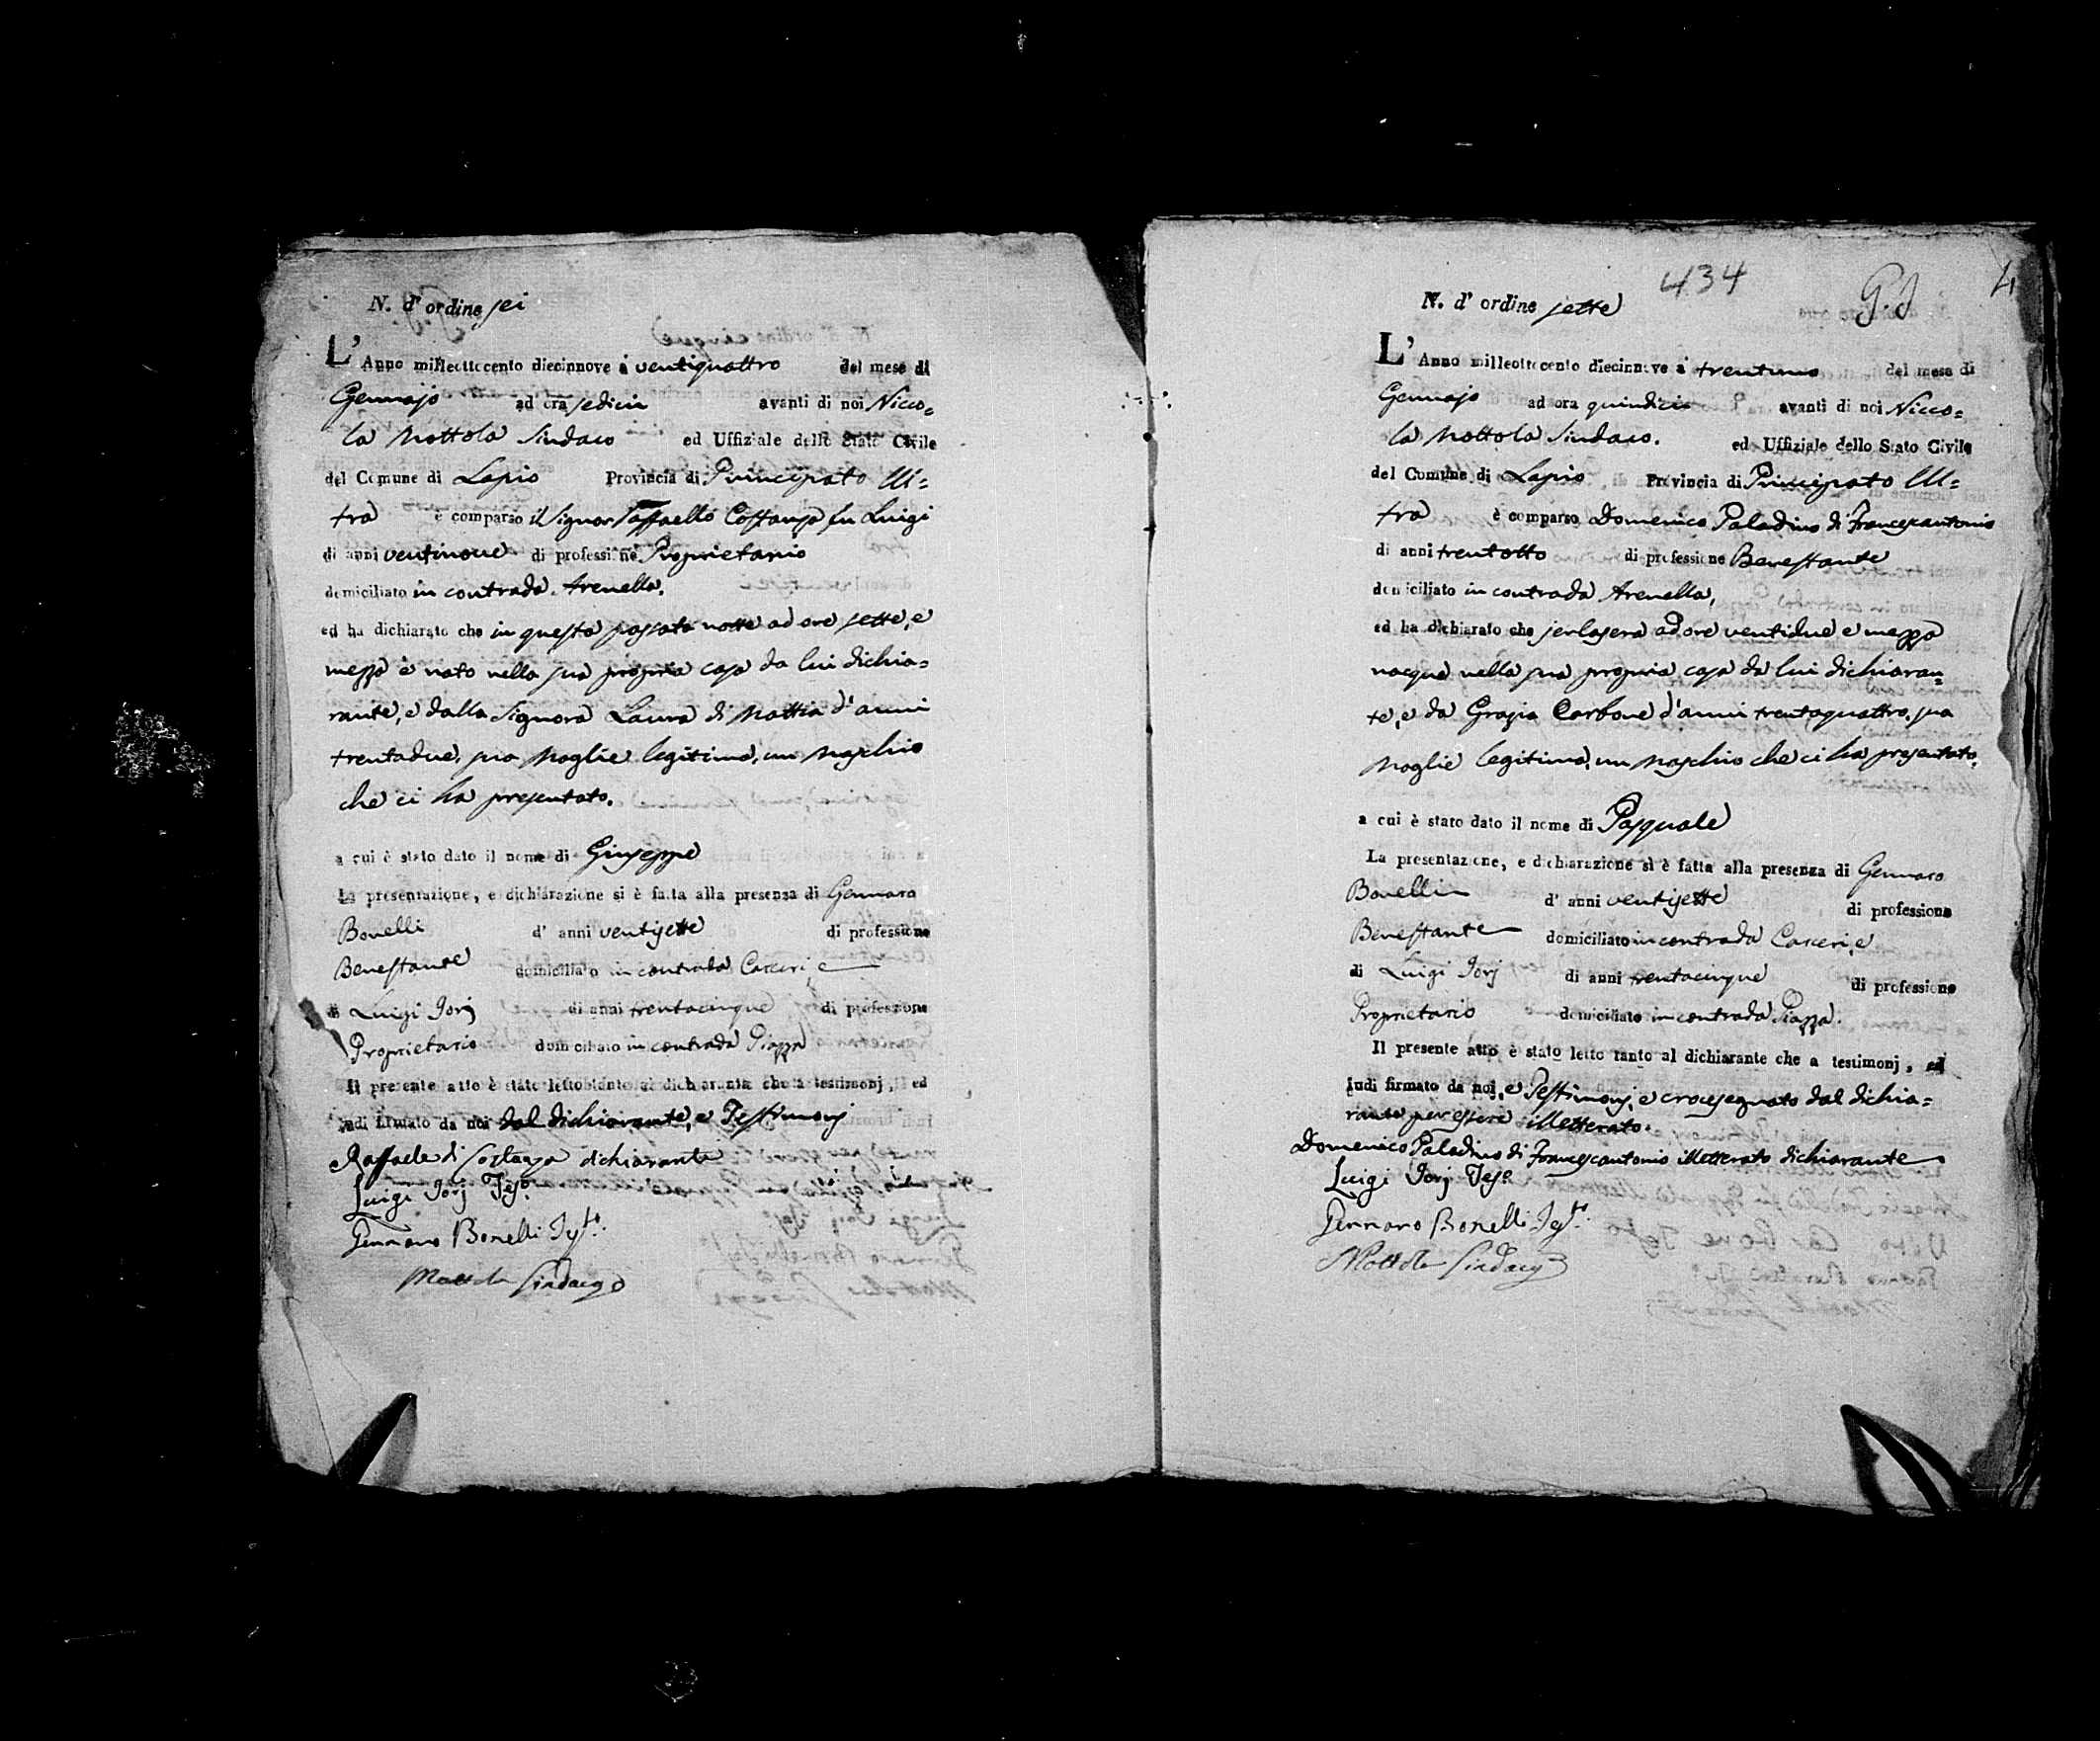 N. d' ordine sei
L' Anno milleottocento diecinnove à ventiquattro del mese di
Gennajo ad ora sedici avanti di noi Nicco=
la Mottola Sindaco ed Uffiziale dello Stato Civile
del Comune di Lapio Provincia di Principato Ul=
tra è comparso il Signor Raffaello Costanza fu Luigi
di anni ventinove di professione Proprietario
domiciliato in contrada Arenella,
ed ha dichiarato che in questa passata notte ad ore sette, e
mezza è nato nella sua propria casa da lui dichia=
rante, e dalla Signora Laura di Mattia d'anni
trentadue, sua Moglie legitima, un Maschio
che ci ha presentato.
a cui è stato dato il nome di Giuseppe
La presentazione, e dichiarazione si è fatta alla presenza di Gennaro
Bonelli d' anni ventisette di professione
Benestante domiciliato in contrada Carceri, e
di Luigi Iorj di anni trentacinque di professione
Proprietario domiciliato in contrada Piazza
Il presente atto è stato letto tanto al dichiarante che a testimonj, ed
indi firmato da noi dal dichiarante, e Testimonj
Raffaele di Costanza dichiarante
Luigi Iorj Tes.º
Gennaro Bonelli Test.º
Mottola Sindaco
434
4
N. d' ordine sette
L' Anno milleottocento diecinnove à trentuno del mese di
Gennajo ad ora quindici avanti di noi Nicco=
la Mottola Sindaco. ed Uffiziale dello Stato Civile
del Comune di Lapio Provincia di Principato Ul=
tra è comparso Domenico Paladino di Francescantonio
di anni trentotto di professione Benestante
domiciliato in contrada Arenella,
ed ha dichiarato che jerlasera ad ore ventidue e mezza
nacque nella sua propria casa da lui dichiaran=
te, e da Grazia Carbone d'anni trentaquattro, sua
Moglie legitima, un Maschio che ci ha presentato.
a cui è stato dato il nome di Pasquale
La presentazione, e dichiarazione si è fatta alla presenza di Gennaro
Bonelli d' anni ventisette di professione
Benestante domiciliato in contrada Carceri, e
di Luigi Iorj di anni trentacinque di professione
Proprietario domiciliato in contrada Piazza.
Il presente atto è stato letto tanto al dichiarante che a testimonj, ed
indi firmato da noi, e Testimonj, e crocesegnato dal dichia=
rante per essere illetterato.
Domenico Paladino di Francescantonio illetterato dichiarante
Luigi Iorj Tes.º
Gennaro Bonelli Test.º
Mottola Sindaco